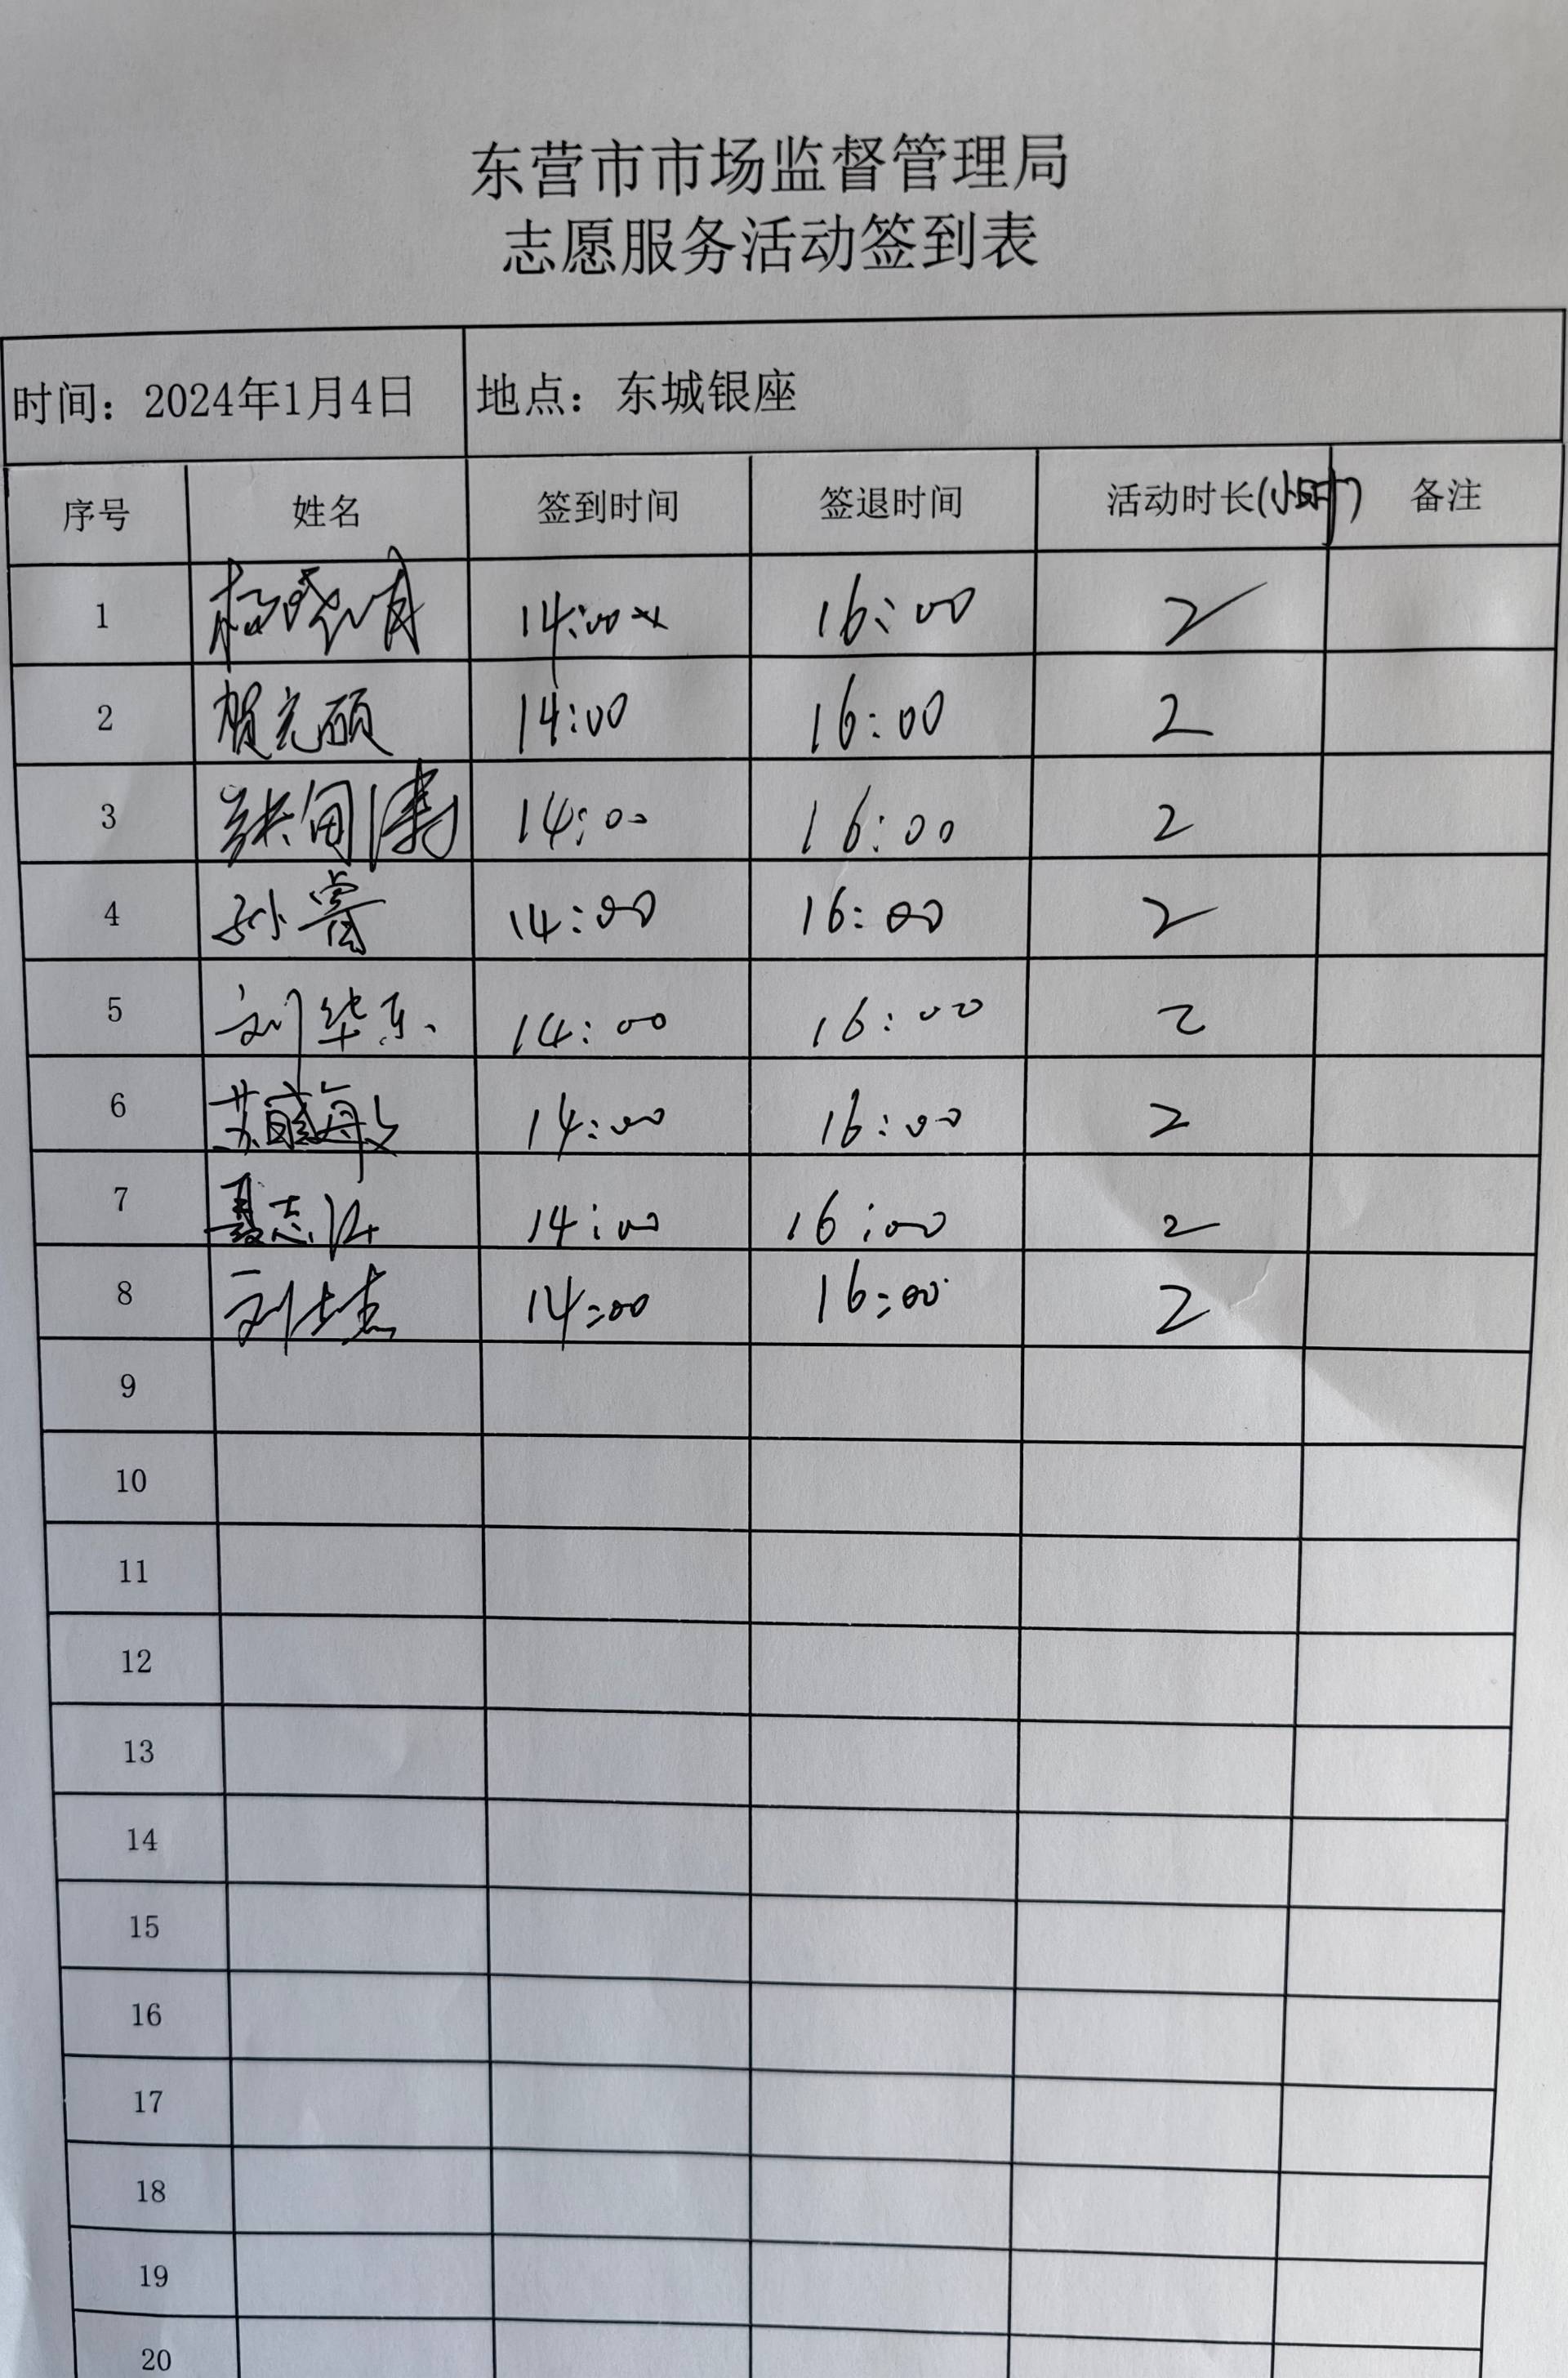 东营市市场监督管理局
志愿服务活动签到表
时间：2024年1月4日 地点：东城银座
序号 姓名 签到时间 签退时间 活动时长(小时) 备注
1 14:00 16:00 2
2 贺光硕 14:00 16:00 2
3 张 14:00 16:00 2
4 孙睿 14:00 16:00 2
5 刘华东 14:00 16:00 2
6 苏敏 14:00 16:00 2
7 聂志 14:00 16:00 2
8 刘 14:00 16:00 2
9
10
11
12
13
14
15
16
17
18
19
20